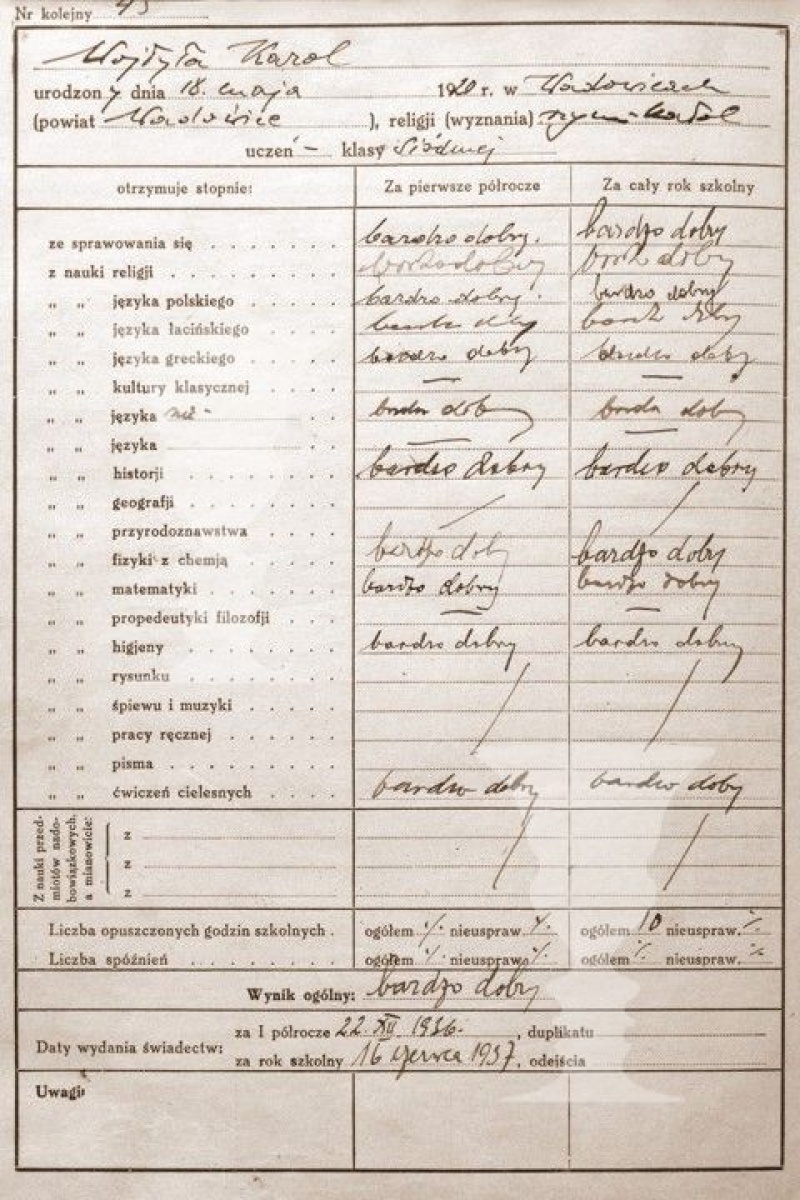 Nr kolejny 45
Wojtyła Karol
urodzony dnia 18. maja 1920 r. w Wadowicach
(powiat Wadowice ), religji (wyznania) rzym.-katol
uczeń – klasy siódmej
otrzymuje stopnie: Za pierwsze półrocze Za cały rok szkolny
ze sprawowania się bardzo dobry. bardzo dobry
z nauki religji bardzo dobry bardz dobry
„ „ języka polskiego bardzo dobry. bardzo dobry
„ „ języka łacińskiego dobry
„ „ języka greckiego bardzo dobry bardzo dobry
„ „ kultury klasycznej — —
„ „ języka niem. bardzo dobry bardzo dobry
„ „ języka — —
„ „ historji bardzo dobry bardzo dobry
„ „ geografji / /
„ „ przyrodoznawstwa
„ „ fizyki z chemją bardzo dobry bardzo dobry
„ „ matematyki bardzo dobry bardzo dobry
„ „ propedeutyki filozofji — —
„ „ higjeny bardzo dobry bardzo dobry
„ „ rysunku
„ „ śpiewu i muzyki / /
„ „ pracy ręcznej
„ „ pisma
„ „ ćwiczeń cielesnych bardzo dobry bardzo dobry
Z nauki przed-
miotów nado-
bowiązkowych,
a mianowicie:
z
z / /
z
Liczba opuszczonych godzin szkolnych . ogółem ·/. nieuspraw. ·/. ogółem 10 nieuspraw. ·/.
Liczba spóźnień ogółem ·/. nieuspraw. ·/. ogółem ·/. nieuspraw. ·/.
Wynik ogólny: bardzo dobry
Daty wydania świadectw:
za I półrocze 22. XII 1936. , duplikatu
za rok szkolny 16 czerwca 1937. , odejścia
Uwagi: